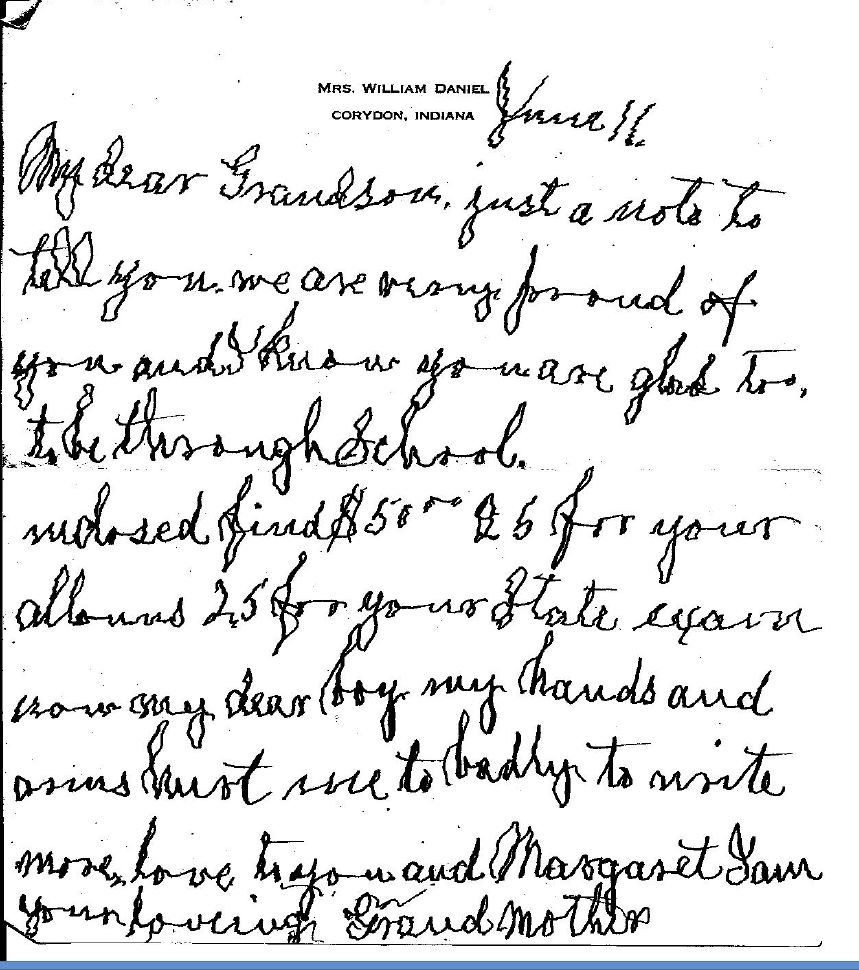 MRS. WILLIAM DANIEL
CORYDON, INDIANA
June 11.
My dear Grandson, just a note to
tell you. we are very proud of
you and I know you are glad too,
to be through School.
inclosed find $50.00 25 for your
allowns 25 for your State exam
now my dear boy my hands and
arms hurt me to badly to write
more, love to you and Margaret I am
your loveing Grand mother